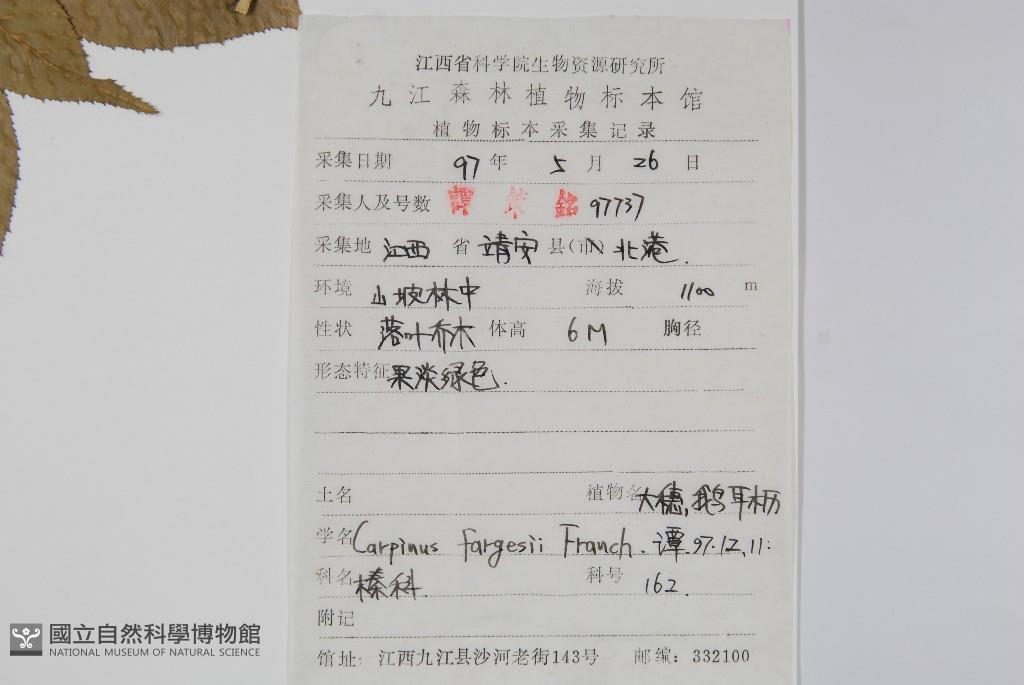 江西省科学院生物资源研究所
九江森林植物标本馆
植物标本采集记录
采集日期 97 年 5 月 26 日
采集人及号数 譚策銘 97737
采集地 江西 省 靖安 县(市) 北港.
环境 山坡林中 海拔 1100 m
性状 落叶乔木 体高 6M 胸径
形态特征 果淡绿色.
土名 植物名 大穗鹅耳枥
学名 Carpinus fargesii Franch. 谭 97.12.11.
科名 榛科. 科号 162.
附记
馆址: 江西九江县沙河老街143号 邮编: 332100
國立自然科學博物館
NATIONAL MUSEUM OF NATURAL SCIENCE